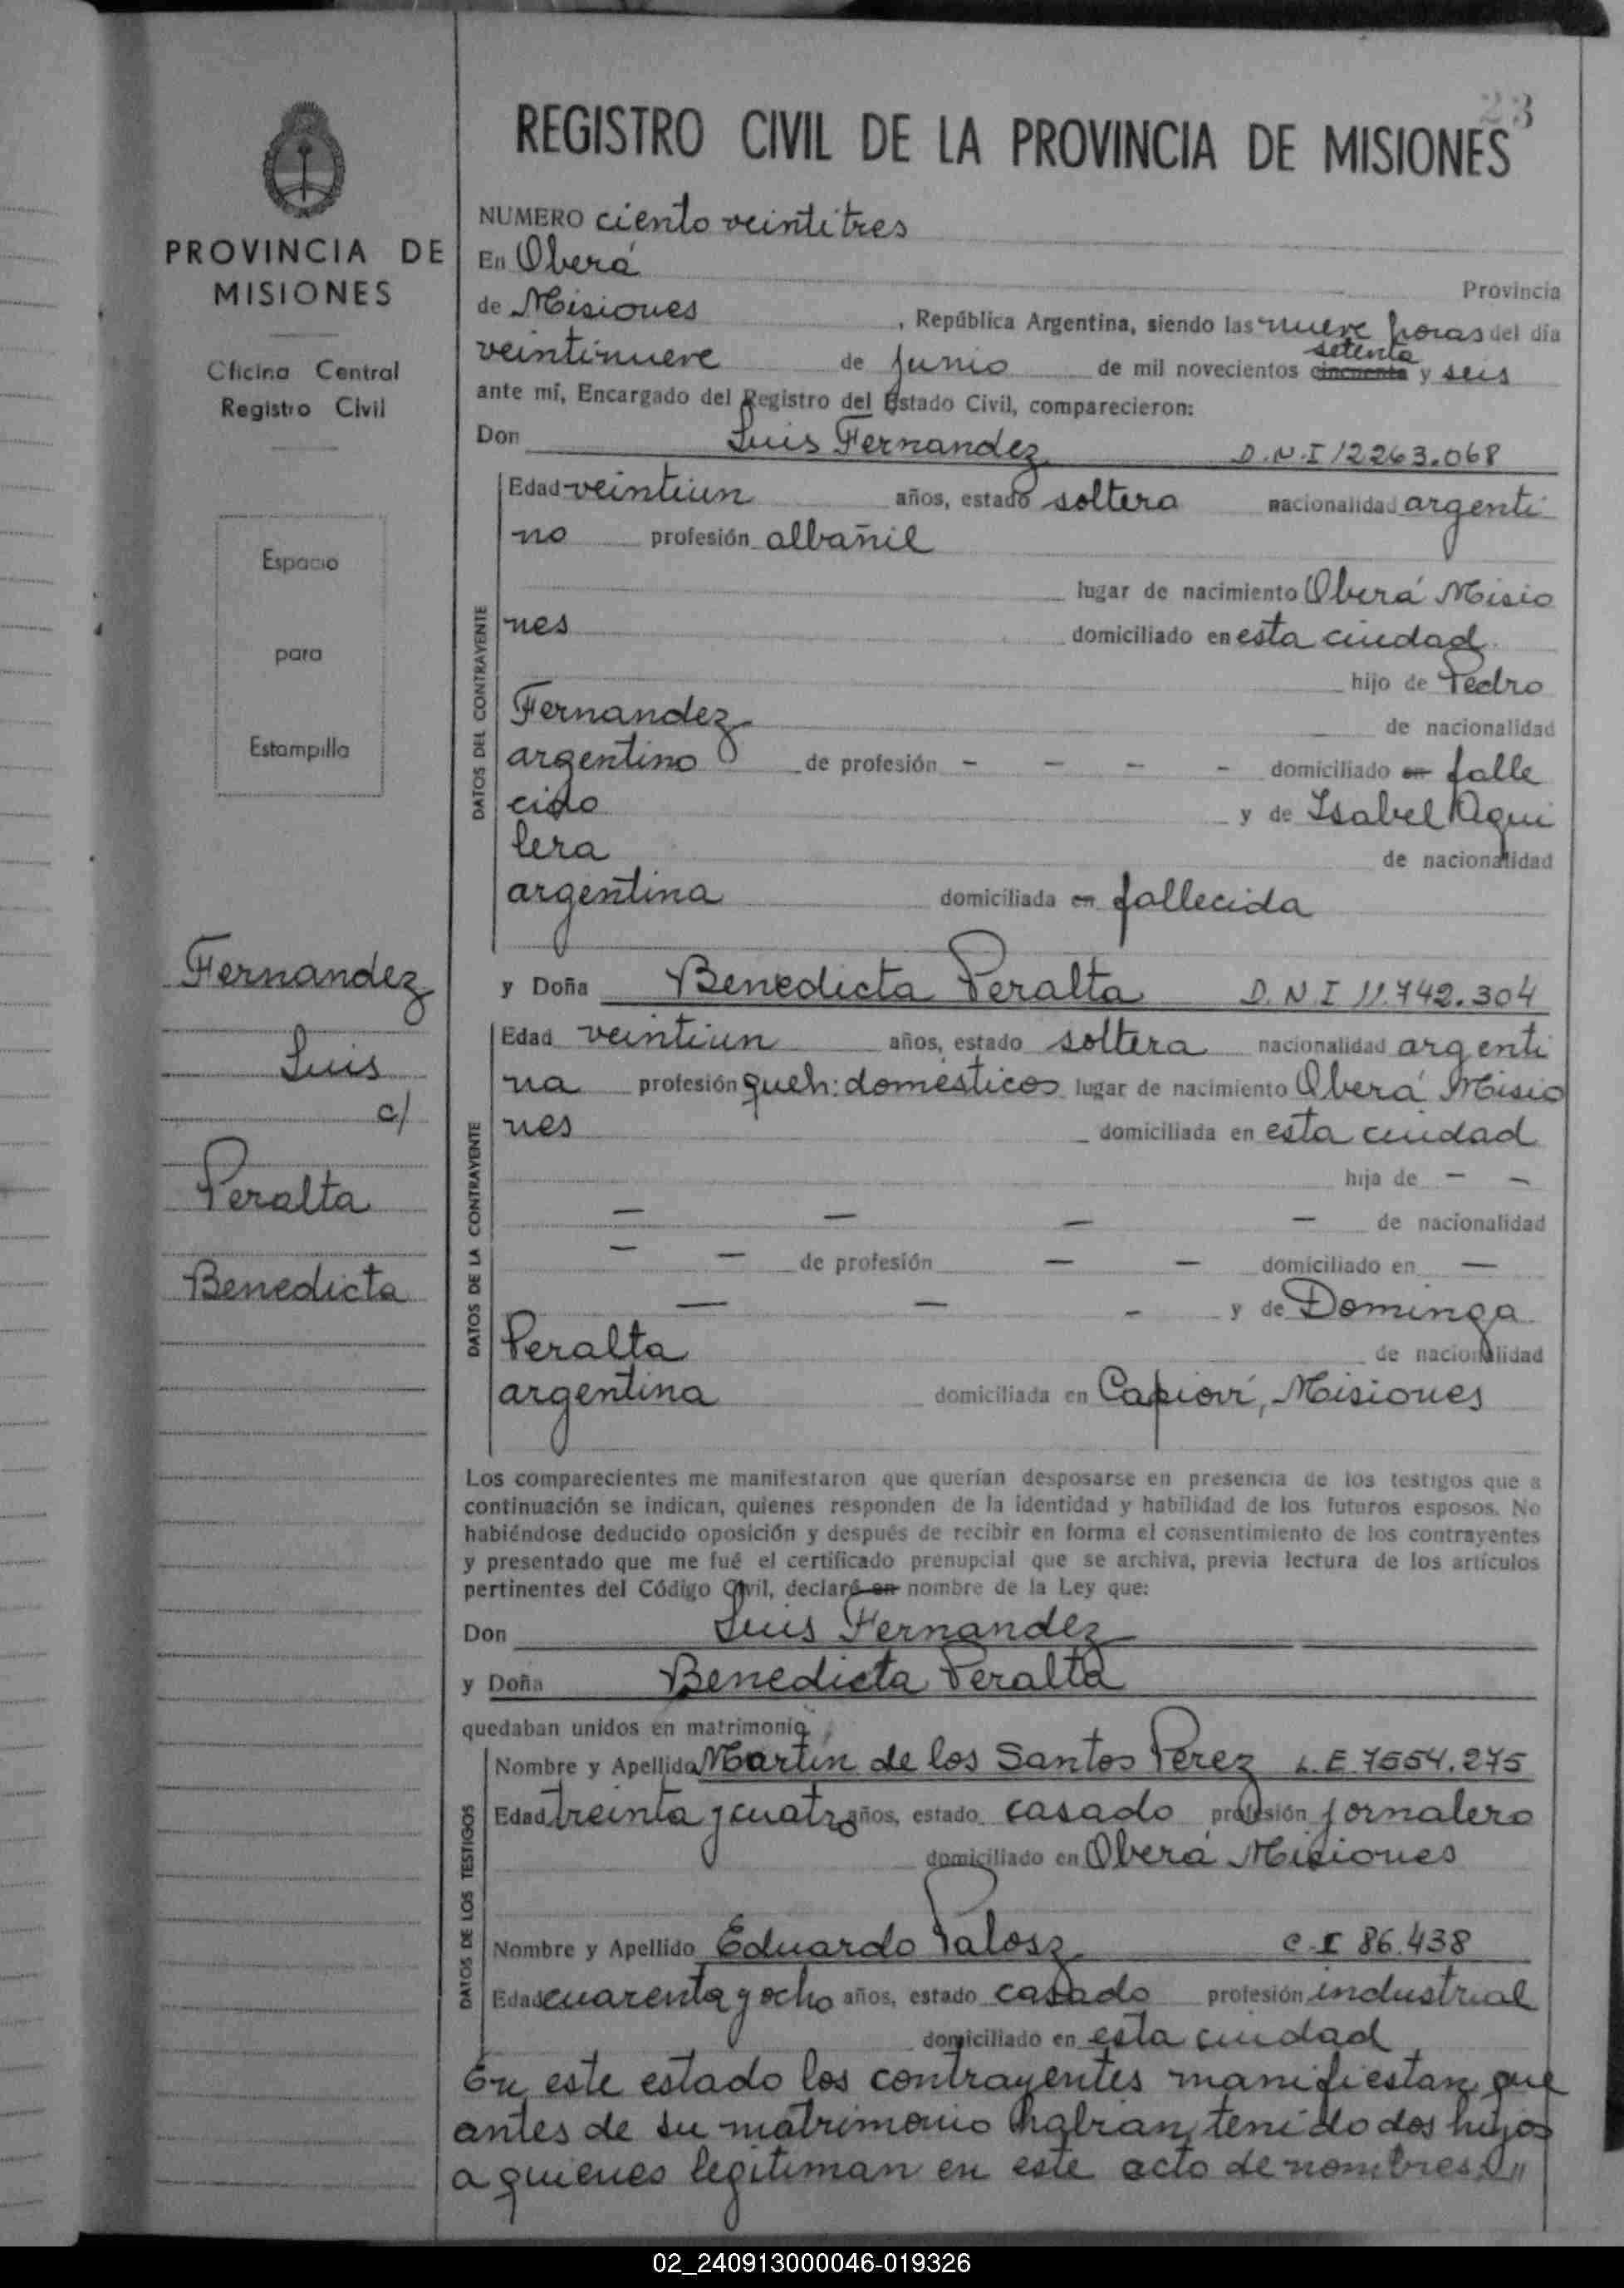 23
REGISTRO CIVIL DE LA PROVINCIA DE MISIONES
PROVINCIA DE
MISIONES
Oficina Central
Registro Civil
Espacio
para
Estampilla
Fernandez
Luis
c/
Peralta
Benedicta
NUMERO ciento veintitres
En Oberá Provincia
de Misiones, República Argentina, siendo las nueve horas del día
setenta
veintinueve de junio de mil novecientos cincuenta y seis
ante mí, Encargado del Registro del Estado Civil, comparecieron:
Don Luis Fernandez D.N.I 12263.068
DATOS DEL CONTRAYENTE
Edad veintiun años, estado soltero nacionalidad argenti
no profesión albañil
lugar de nacimiento Oberá Misio
nes domiciliado en esta ciudad
hijo de Pedro
Fernandez de nacionalidad
argentino de profesión - - - - domiciliado en falle
cido y de Isabel Aqui
lera de nacionalidad
argentina domiciliada en fallecida
y Doña Benedicta Peralta D.N.I 11.742.304
DATOS DE LA CONTRAYENTE
Edad veintiun años, estado soltera nacionalidad argenti
na profesión queh: domésticos lugar de nacimiento Oberá Misio
nes domiciliada en esta ciudad
hija de - -
- - - - de nacionalidad
- - de profesión - - domiciliado en -
- - - y de Dominga
Peralta de nacionalidad
argentina domiciliada en Capiovi, Misiones
Los comparecientes me manifestaron que querían desposarse en presencia de los testigos que a
continuación se indican, quienes responden de la identidad y habilidad de los futuros esposos. No
habiéndose deducido oposición y después de recibir en forma el consentimiento de los contrayentes
y presentado que me fué el certificado prenupcial que se archiva, previa lectura de los artículos
pertinentes del Código Civil, declaré en nombre de la Ley que:
Don Luis Fernandez
y Doña Benedicta Peralta
quedaban unidos en matrimonio
DATOS DE LOS TESTIGOS
Nombre y Apellido Martin de los Santos Perez L.E 7554.275
Edad treinta y cuatro años, estado casado profesión jornalero
domiciliado en Oberá Misiones
Nombre y Apellido Eduardo Palosz C.I 86.438
Edad cuarenta y ocho años, estado casado profesión industrial
domiciliado en esta ciudad
En este estado los contrayentes manifiestan que
antes de su matrimonio habian tenido dos hijos
a quienes legitiman en este acto de nombres
02_240913000046-019326